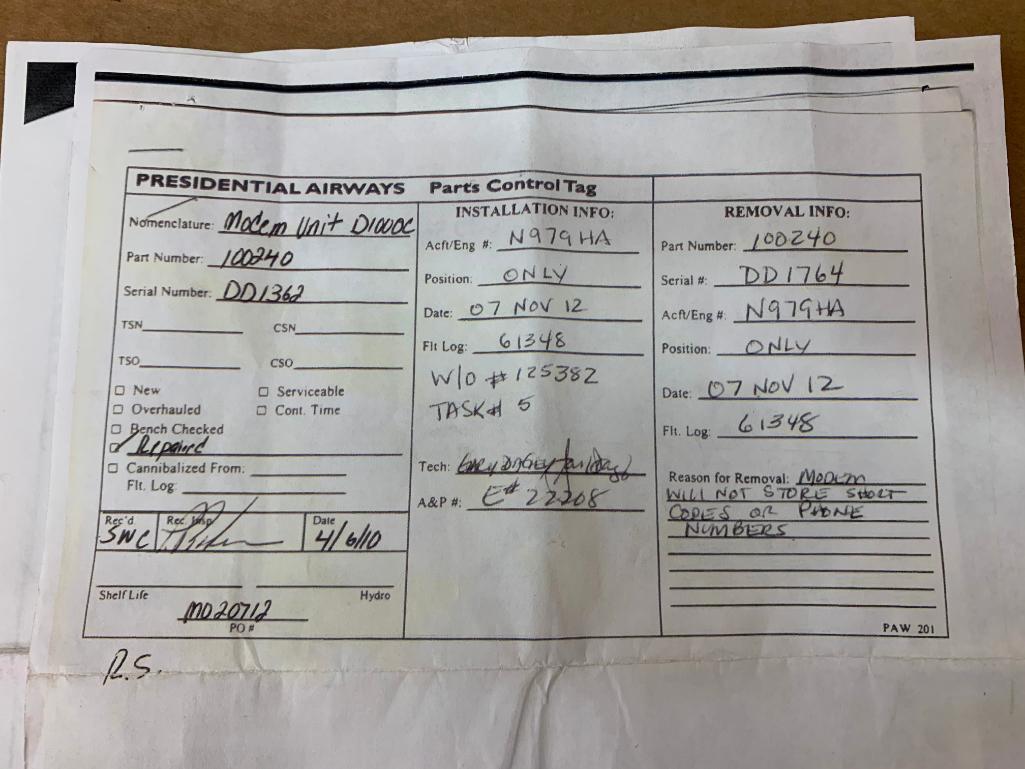 PRESIDENTIAL AIRWAYS Parts Control Tag
Nomenclature: Modem Unit D1000C
Part Number: 100240
Serial Number: DD1362
TSN CSN
TSO CSO
New Serviceable
Overhauled Cont. Time
Bench Checked
Repaired
Cannibalized From:
Flt. Log:
Rec'd Rec. Insp. Date
SWC 4/6/10
Shelf Life Hydro
MD20712
PO #
INSTALLATION INFO:
Acft/Eng #: N979HA
Position: ONLY
Date: 07 NOV 12
Flt Log: 61348
W/O # 125382
TASK# 5
Tech:
A&P #: E# 22208
REMOVAL INFO:
Part Number: 100240
Serial #: DD1764
Acft/Eng #: N979HA
Position: ONLY
Date: 07 NOV 12
Flt. Log: 61348
Reason for Removal: MODEM
WILL NOT STORE SHORT
CODES OR PHONE
NUMBERS
PAW 201
R.S.